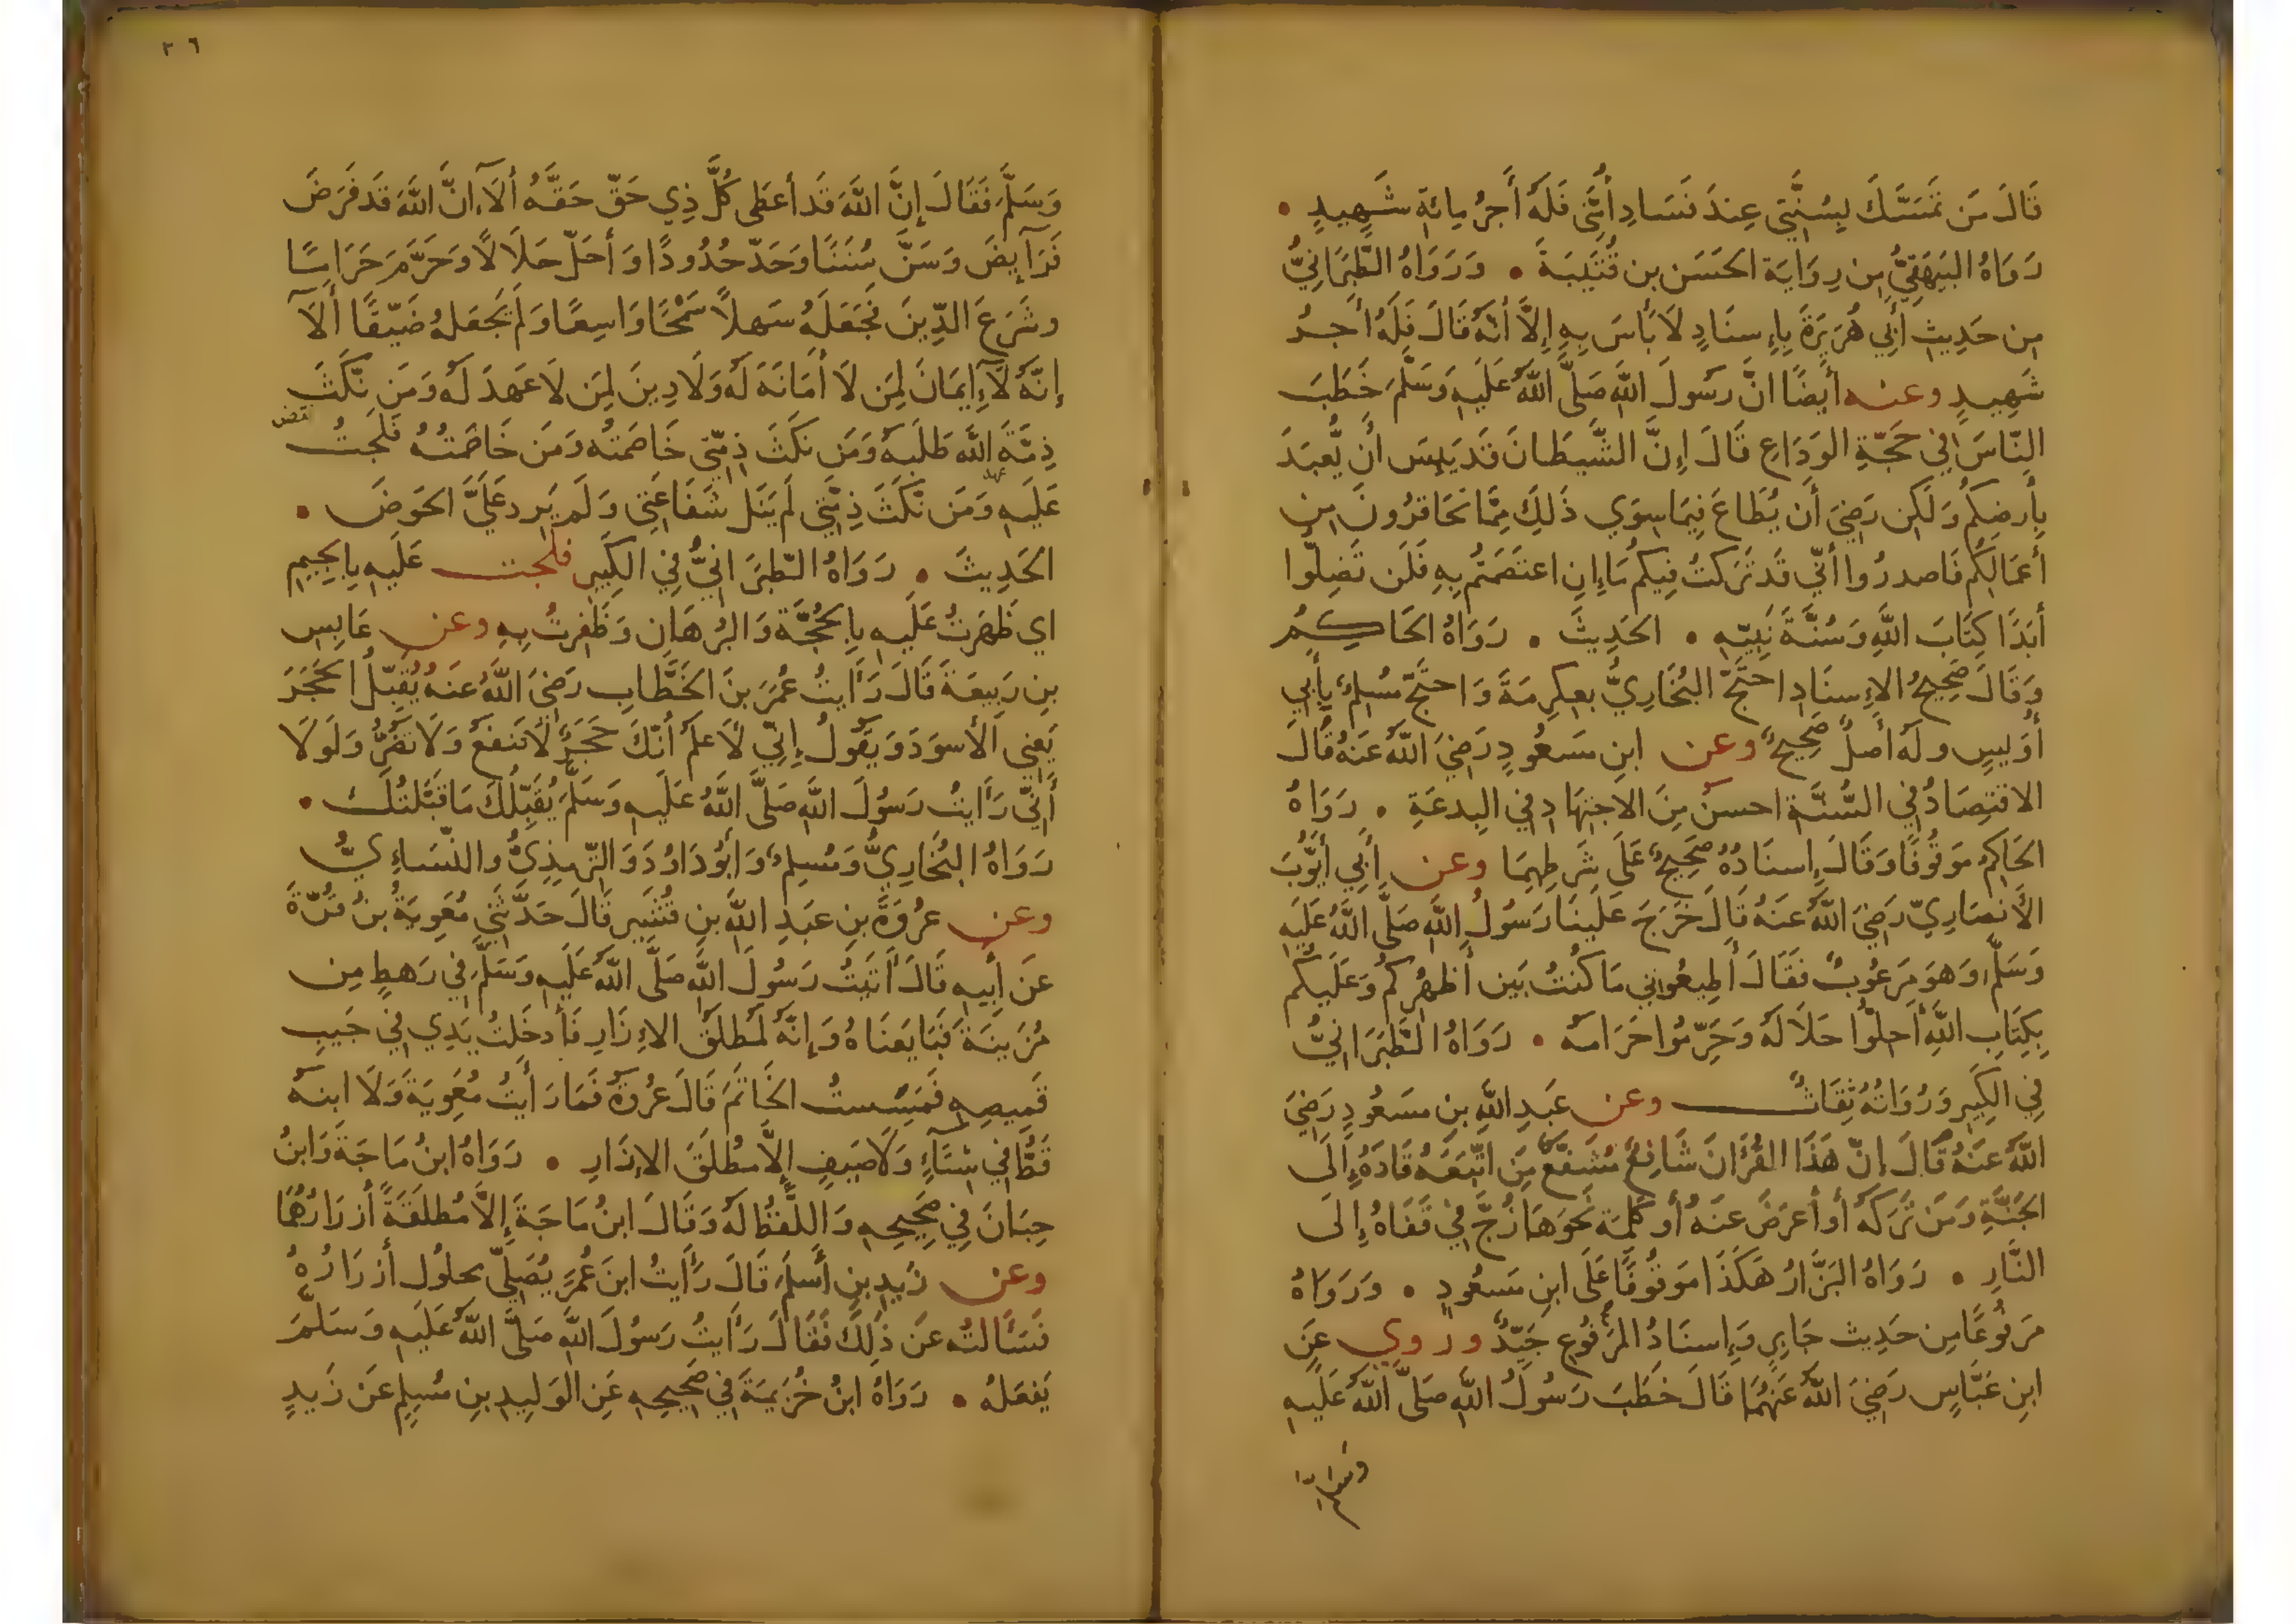 قَالَ مَن تَمَسَّكَ بِسُنَّتِي عِندَ فَسَادِ أُمَّتِي فَلَهُ أَجرُ مِائَةِ شَهِيدٍ •
رَوَاهُ البَيهَقِيُّ مِن رِوَايَة الحَسَن بن قُتَيبَةَ • وَرَوَاهُ الطَّبَرَانِيُّ
مِن حَدِيثِ أَبِي هُرَيرَةَ بِإِسنَادٍ لَا بَأسَ بِهِ إِلَّا أَنَّهُ قَالَ فَلَهُ أَجرُ
شَهِيدٍ وعنه أَيضًا انَّ رَسُولَ اللَّهِ صَلَّى اللَّهُ عَلَيهِ وَسَلَّمَ خَطَبَ
النَّاسَ فِي حَجَّةِ الوَدَاعِ قَالَ إِنَّ الشَّيطَانَ قَد يَئِسَ أَن يُّعبَدَ
بِأَرضِكُم وَلَكِن رَضِيَ أَن يُطَاعَ فِيمَا سِوَي ذَلِكَ مِمَّا تَحَاقَرُونَ مِن
أَعمَالِكُم فَاحذرُوا أنّي قَد تَرَكتُ فِيكُم مَا إِنِ اعتَصَمتُم بِهِ فَلَن تَضِلُّوا
أَبَدًا كِتَابَ اللَّهِ وَسُنَّةَ نَبِيّهِ • الحَدِيثَ • رَوَاهُ الحَاكِمُ
وَقَالَ صَحِيحُ الإِسنَادِ احتَجَّ البُخَارِيُّ بعِكرِمَةَ وَاحتَجَّ مُسلِمٌ بِأَبِي
أُوَيسٍ وله أَصلٌ صَحِيحٌ وعن ابنِ مَسعُودٍ رَضِيَ اللَّهُ عَنهُ قَالَ
الاقتِصَادُ فِي السُّنَّةِ احسَنُ مِنَ الاجتِهَادِ فِي البِدعَةِ • رَوَاهُ
الحَاكِمُ مَوقُوفًا وَقَالَ إِسنَادُهُ صَحِيحٌ عَلَى شَرطِهِمَا وعن أَبِي أَيُّوبَ
الأَنصَارِيّ رَضِيَ اللَّهُ عَنهُ قَالَ خَرَجَ عَلَينَا رَسُولُ اللَّهِ صَلَّى اللَّهُ عَلَيهِ
وَسَلَّمَ وَهوَ مَرعُوبٌ فَقَالَ أَطِيعُونِي مَا كُنتُ بَين أَظهُرِكُم وَعَلَيكُم
بِكِتَابِ اللَّهِ أَحِلُّوا حَلَالَهُ وَحَرِّمُوا حَرَامَهُ • رَوَاهُ الطَّبَرَانِيُّ
فِي الكَبِيرِ وَرُوَاتُهُ ثِقَاتٌ وعن عَبدِ اللَّهِ بنِ مَسعُودٍ رَضِيَ
اللَّهُ عَنهُ قَالَ إِنَّ هَذَا القُرْآنَ شَافِعٌ مُشَفَّعٌ مَنِ اتَّبَعَهُ قَادَهُ إِلَى
الجَنَّةِ وَمَن تَرَكَهُ أَو أَعرَضَ عَنهُ أَو كَلِمَةً نَحوَهَا زُجَّ فِي قَفَاهُ إِلَى
النَّارِ • رَوَاهُ البَزَّارُ هَكَذَا مَوقُوفًا عَلَى ابنِ مَسعُودٍ • وَرَوَاهُ
مَرفُوعًا مِن حَدِيث جَابِرٍ وَإِسنَادُ المَرفُوعِ جَيِّدٌ وروي عَنِ
ابنِ عَبَّاسٍ رَضِيَ اللَّهُ عَنهُمَا قَالَ خَطَبَ رَسُولُ اللَّهِ صَلَّى اللَّهُ عَلَيهِ
وسلم
٢٦
وَسَلَّمَ فَقَالَ إِنَّ اللَّهَ قَد أَعطَى كُلَّ ذِي حَقّ حَقَّهُ أَلَا إِنَّ اللَّهَ قَد فَرَضَ
فَرَايِضَ وَسَنَّ سُنَنًا وَحَدّ حُدُودًا وَأَحَلّ حَلَالًا وَحَرَّمَ حَرَامًا
وشَرَعَ الدِّينَ فَجَعَلَهُ سَهلًا سَمحًا وَاسِعًا وَلَم يَجعَلهُ ضَيِّقًا أَلَا
إِنَّهُ لَا إِيمَانَ لِمَن لَا أَمَانَةَ لَهُ وَلَا دِينَ لِمَن لَا عَهدَ لَه وَمَن نَّكَثَ
نقض
ذِمَّةَ اللَّهِ طَلَبَهُ وَمَن نَكَثَ ذِمَّتِي خَاصَمتُه وَمَن خَاصَمتُهُ فَلَجتُ
عَلَيهِ وَمَن نَّكَثَ ذِمَّتِي لَم يَنَل شَفَاعَتِي وَلَم يَرِد عَلَيَّ الحَوضَ •
الحَدِيثَ • رَوَاهُ الطّبَرَانِيُّ فِي الكَبِيرِ فلجت عَلَيهِ بِالجِيمِ
اي ظَهَرتُ عَلَيهِ بِالحُجَّةِ وَالبُرهَانِ وَظَفِرتُ بِهِ وعن عَابِسِ
بن رَبِيعَةَ قَالَ رَأَيتُ عُمَرَ بنَ الخَطَّابِ رَضِيَ اللَّهُ عَنهُ يُقَبِّلُ الحَجَرَ
يَعنِي الأَسوَدَ وَيَقُولُ إِنِّي لَأَعلَمُ أَنَّكَ حَجَرٌ لَا تَنفَعُ وَلَا تَضُرُّ وَلَولَا
أَنِّي رَأَيتُ رَسُولَ اللَّهِ صَلَّى اللَّهُ عَلَيهِ وَسَلَّمَ يُقَبِّلُكَ مَا قَبَّلتُكَ •
رَوَاهُ البُخَارِيُّ وَمُسلِمٌ وَابُو دَاوُدَ وَالتِّرمِذِيُّ والنَّسَاءِيُّ
وعن عُروَةَ بنِ عَبدِ اللَّهِ بنِ قُشَيرٍ قَالَ حَدَّثَنِي مُعَوِيَةُ بنُ قُرَّةَ
عَن أَبِيهِ قَالَ أَتَيتُ رَسُولَ اللَّهِ صَلَّى اللَّهُ عَلَيهِ وَسَلَّمَ فِي رَهطٍ مِن
مُزَينَةَ فَبَايَعنَاهُ وَإِنَّهُ لَمُطلَقُ الإِزَارِ فَأَدخَلتُ يَدِي فِي جَيبِ
قَمِيصِهِ فَمَسِستُ الخَاتَمَ قَالَ عُروَةُ فَمَا رَأَيتُ مُعَوِيَةَ وَلَا ابنَهُ
قَطُّ فِي شِتَاءٍ وَلَا صَيفٍ إِلَّا مُطلَقَ الإِزَارِ • رَوَاهُ ابنُ مَاجَةَ وَابنُ
حِبَانَ فِي صَحِيحِهِ وَاللَّفظُ لَهُ وَقَالَ ابنُ مَاجَةَ إِلَّا مُطلَقَةً أَزرَارُهُمَا
وعن زَيدِ بنِ أَسلَمَ قَالَ رَأَيتُ ابنَ عُمَرَ يُصَلِّي محلُول أَزرَارُهُ
فَسَأَلتُه عَن ذَلِكَ فَقَالَ رَأَيتُ رَسُولَ اللَّهِ صَلَّى اللَّهُ عَلَيهِ وَسَلَّمَ
يَفعَلهُ • رَوَاهُ ابنُ خُزَيمَةَ فِي صَحِيحِهِ عَنِ الوَلِيدِ بنِ مُسلِمٍ عَن زَيدٍ